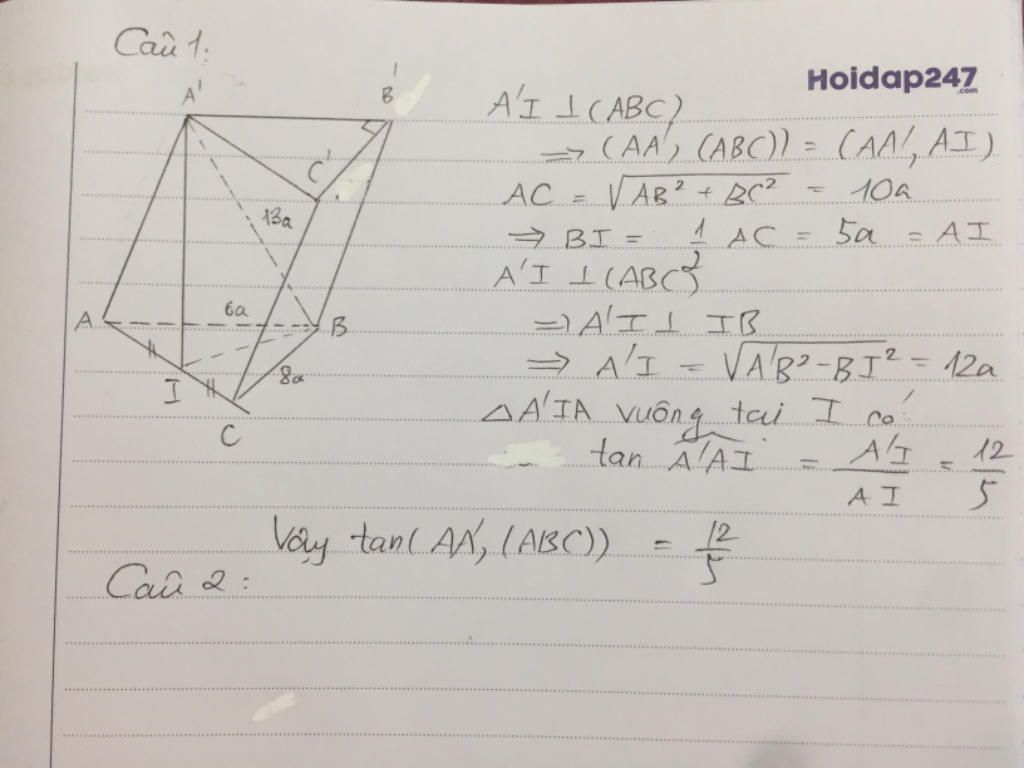 Câu 1:
Hoidap247
.com
A'
B'
C'
13a
6a
A
B
I
8a
C
A'I ⊥ (ABC)
=> (AA', (ABC)) = (AA', AI)
AC = √(AB² + BC²) = 10a
=> BI = 1/2 AC = 5a = AI
A'I ⊥ (ABC)
=> A'I ⊥ IB
=> A'I = √(A'B² - BI²) = 12a
△A'IA vuông tại I có:
tan A'AI = A'I/AI = 12/5
Vậy tan(AA', (ABC)) = 12/5
Câu 2: